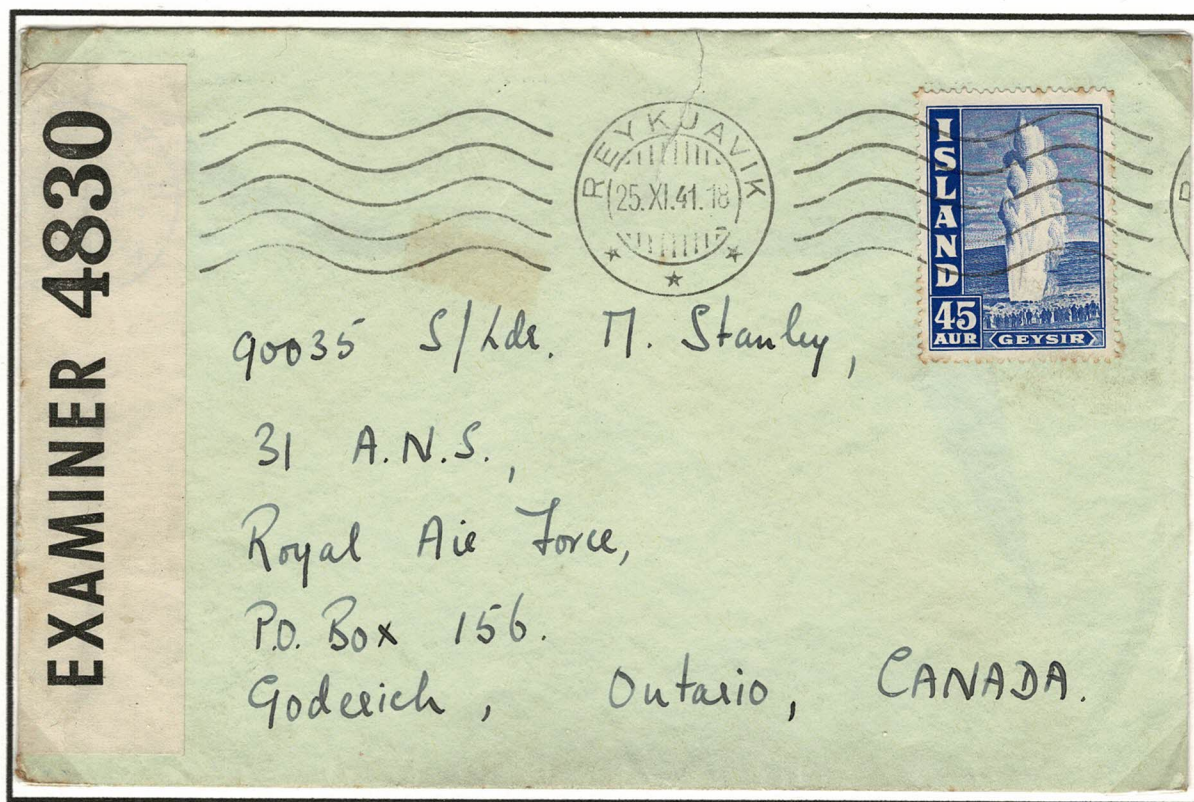 EXAMINER 4830
REYKJAVIK
25.XI.41.18
ISLAND
45
AUR
GEYSIR
90035 S/Ldr. M. Stanley,
31 A.N.S.,
Royal Air Force,
P.O. Box 156.
Goderich, Ontario, CANADA.